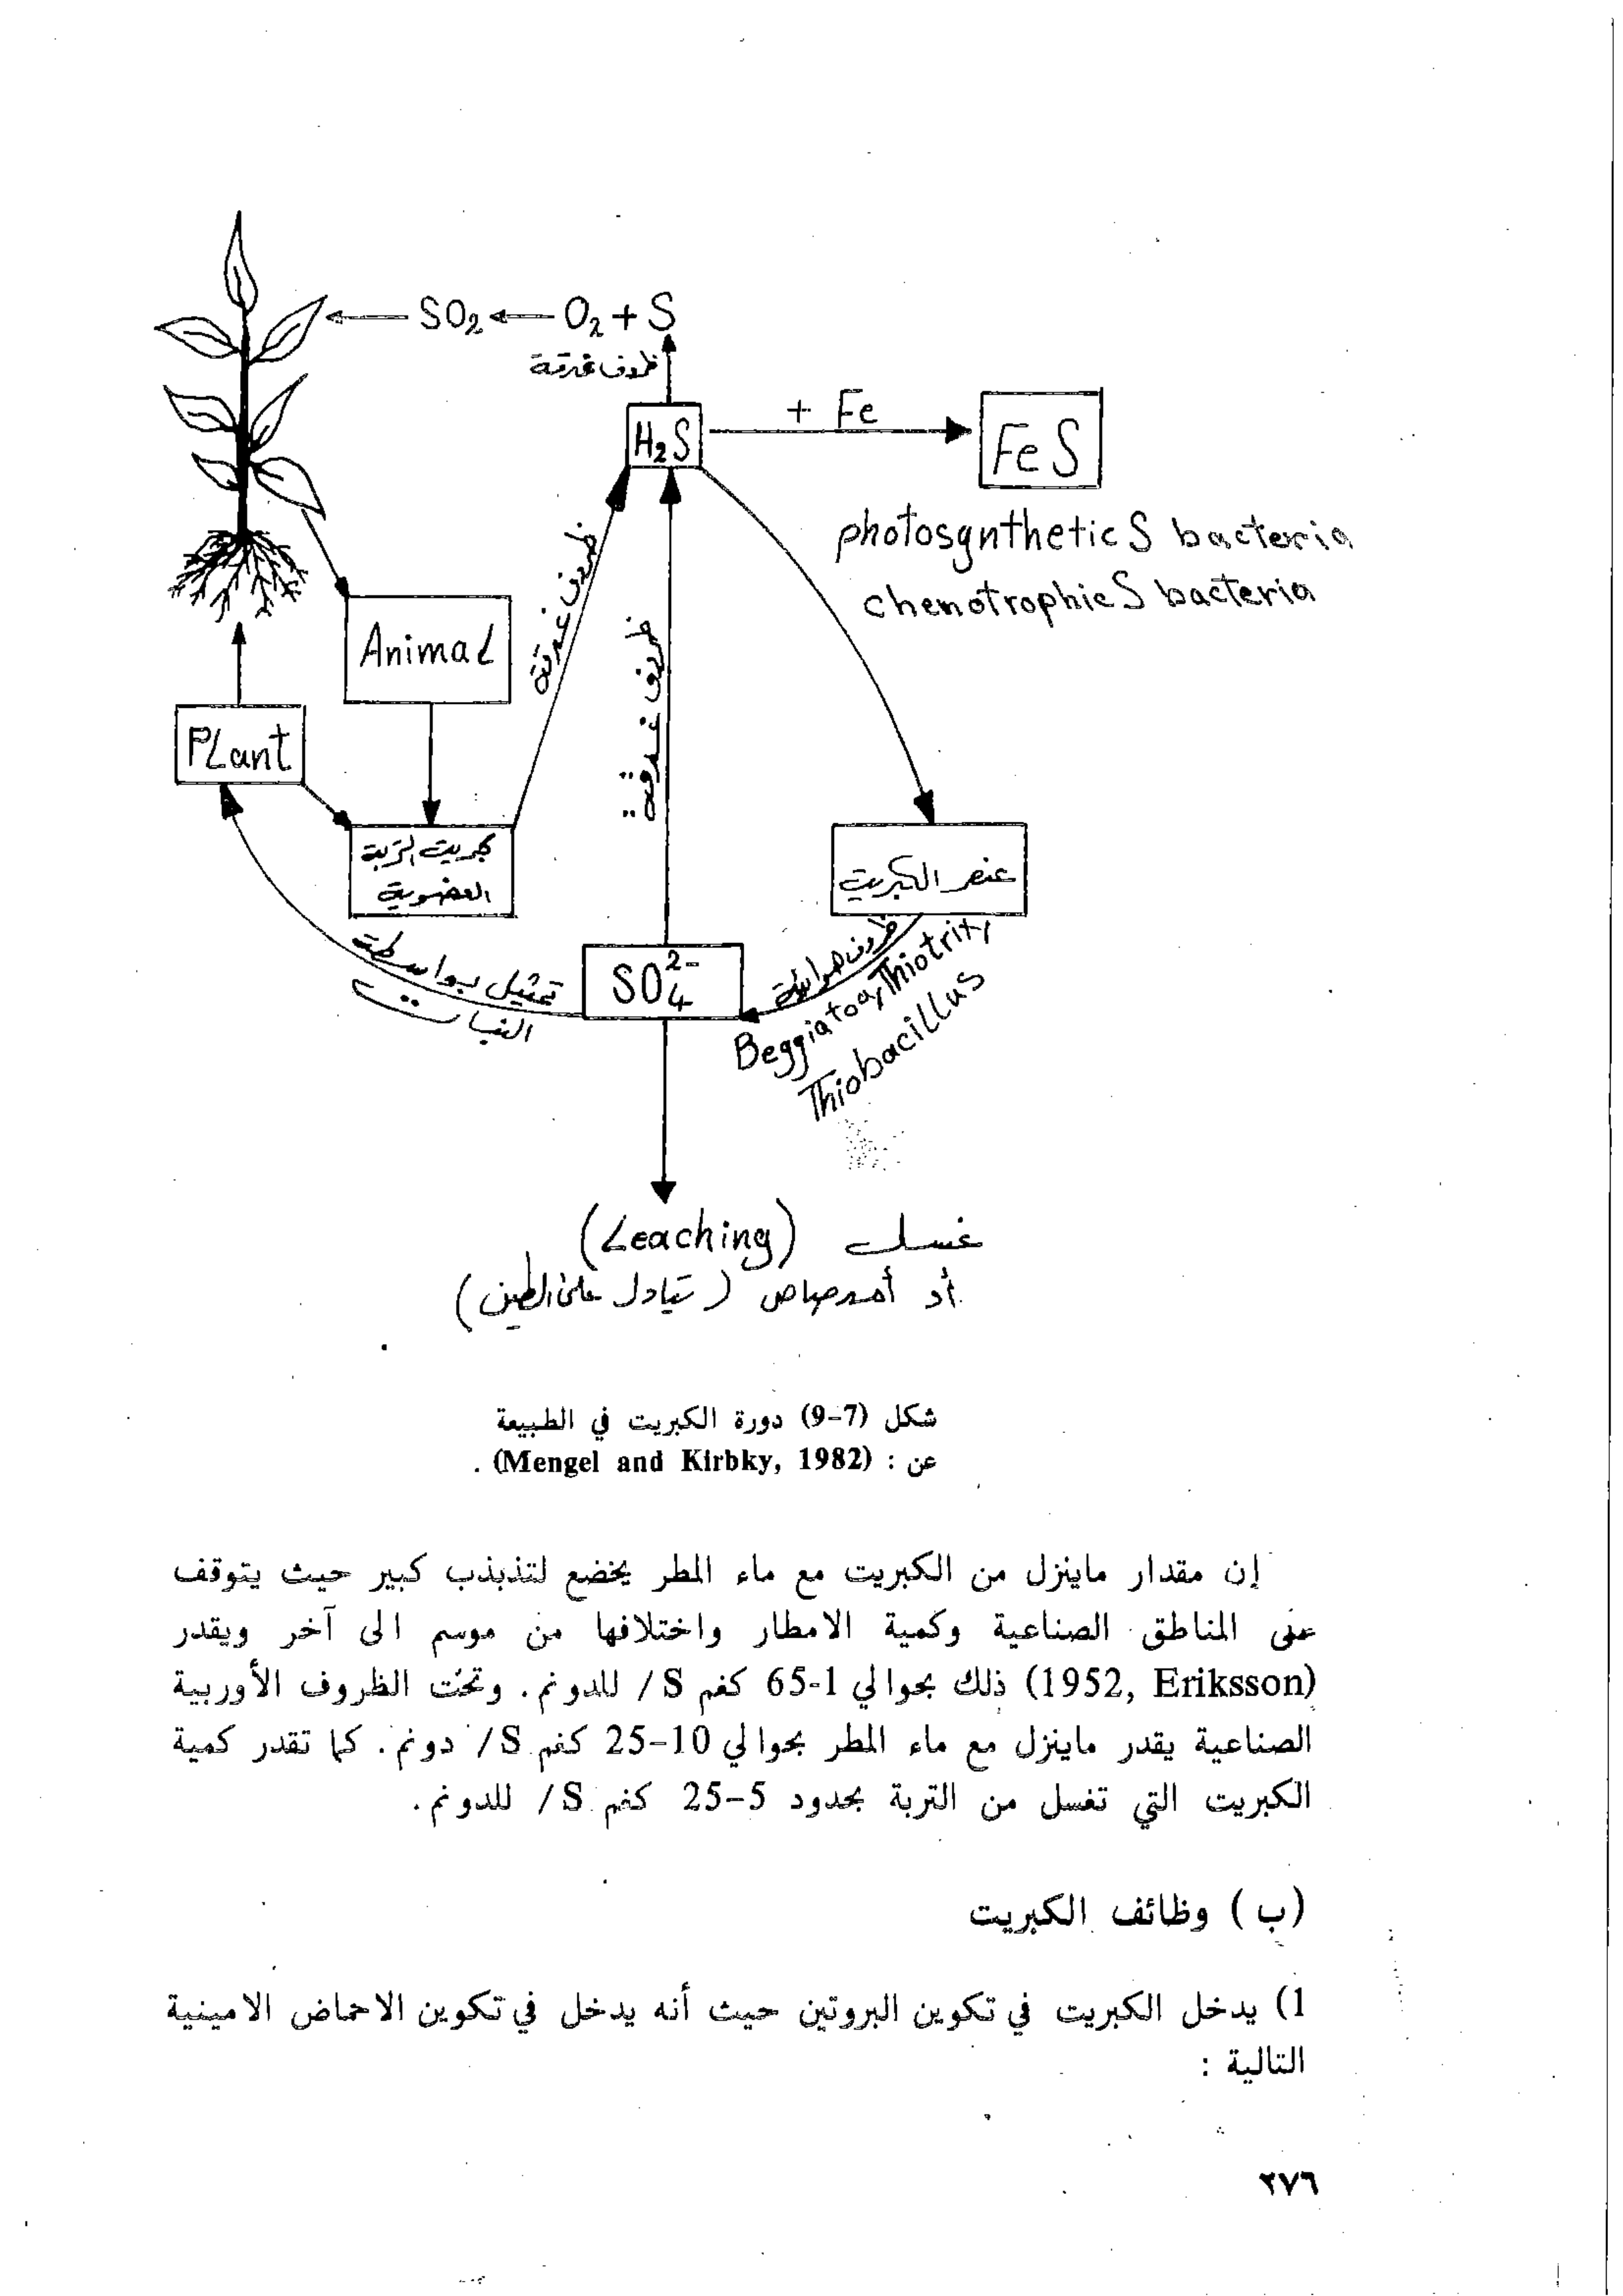 SO₂ ← O₂ + S
ظروف غدقة
H₂S
+ Fe
FeS
photosgnthetic S bacteria
chenotrophic S bacteria
ظروف غدقة
ظروف غدقة
Animal
PLant
كبريت التربة
العضوية
عنصر الكبريت
ظروف هوائية
Beggiatoa, Thiotrity
Thiobacillus
SO₄²⁻
تمثيل بواسطة
النبات
غسل (Leaching)
أو أمدصاص (تبادل على الطين)
شكل (7-9) دورة الكبريت في الطبيعة
عن : (Mengel and Kirbky, 1982) .
إن مقدار ماينزل من الكبريت مع ماء المطر يخضع لتذبذب كبير حيث يتوقف
على المناطق الصناعية وكمية الامطار واختلافها من موسم الى آخر ويقدر
(1952, Eriksson) ذلك بحوالي 1-65 كغم S / للدونم. وتحت الظروف الأوربية
الصناعية يقدر ماينزل مع ماء المطر بحوالي 10-25 كغم S / دونم. كما تقدر كمية
الكبريت التي تغسل من التربة بحدود 5-25 كغم S / للدونم.
(ب) وظائف الكبريت
1) يدخل الكبريت في تكوين البروتين حيث أنه يدخل في تكوين الاحماض الامينية
التالية :
٢٧٦